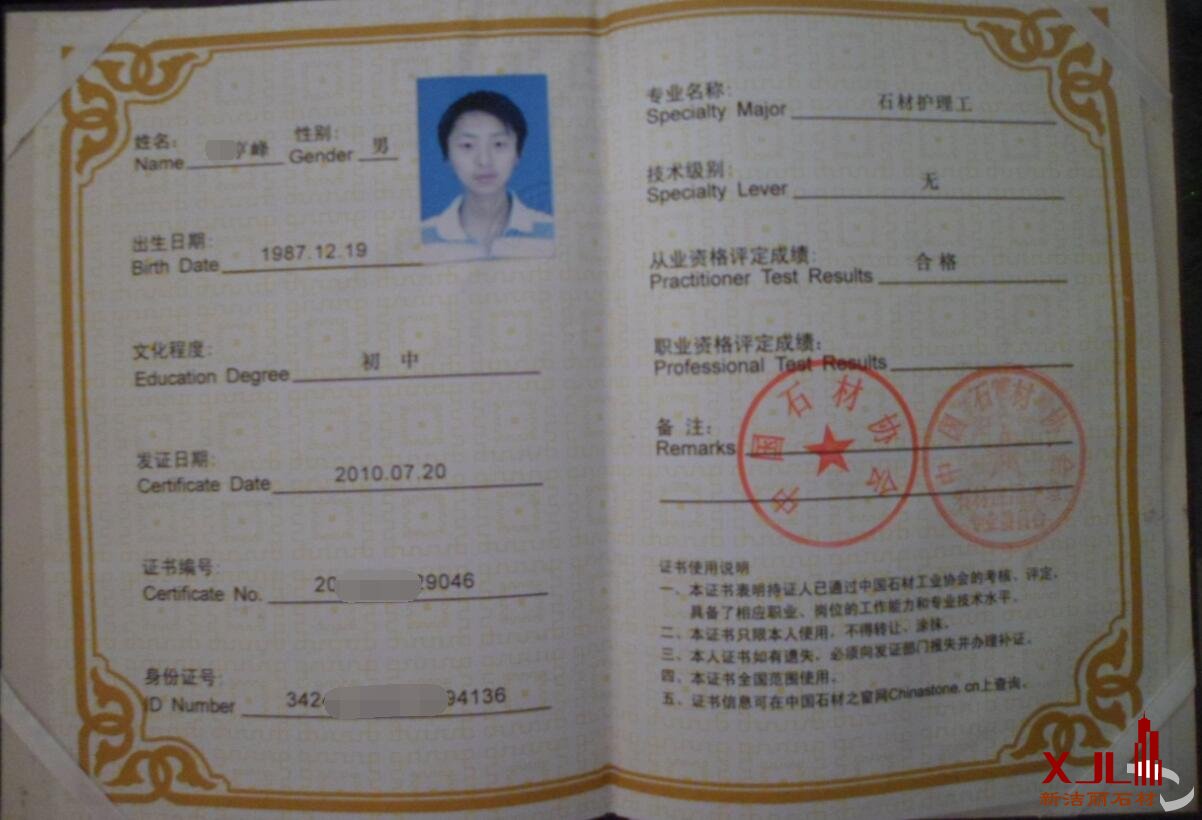 姓名: 峰 性别: 男
Name Gender
出生日期:
Birth Date 1987.12.19
文化程度: 初 中
Education Degree
发证日期:
Certificate Date 2010.07.20
证书编号:
Certificate No. 20 29046
身份证号:
ID Number 342 94136
专业名称: 石材护理工
Specialty Major
技术级别: 无
Specialty Lever
从业资格评定成绩: 合格
Practitioner Test Results
职业资格评定成绩:
Professional Test Results
备 注:
Remarks
中国石材协会
中国石材协会
专业委员会
证书使用说明
一、本证书表明持证人已通过中国石材工业协会的考核、评定,
具备了相应职业、岗位的工作能力和专业技术水平。
二、本证书只限本人使用,不得转让、涂抹。
三、本人证书如有遗失,必须向发证部门报失并办理补证。
四、本证书全国范围使用。
五、证书信息可在中国石材之窗网Chinastone.cn上查询。
XJL
新洁丽石材